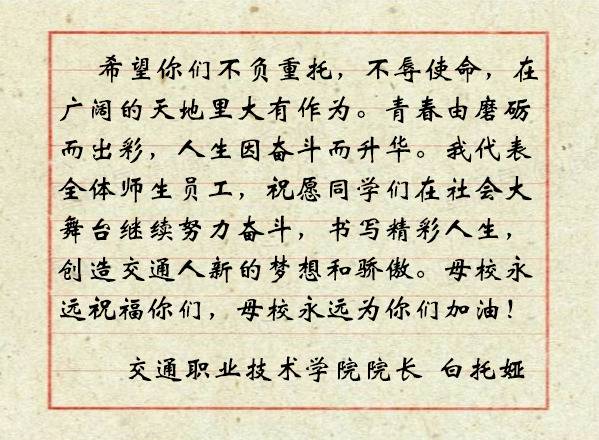 希望你们不负重托，不辱使命，在
广阔的天地里大有作为。青春由磨砺
而出彩，人生因奋斗而升华。我代表
全体师生员工，祝愿同学们在社会大
舞台继续努力奋斗，书写精彩人生，
创造交通人新的梦想和骄傲。母校永
远祝福你们，母校永远为你们加油！
交通职业技术学院院长 白托娅